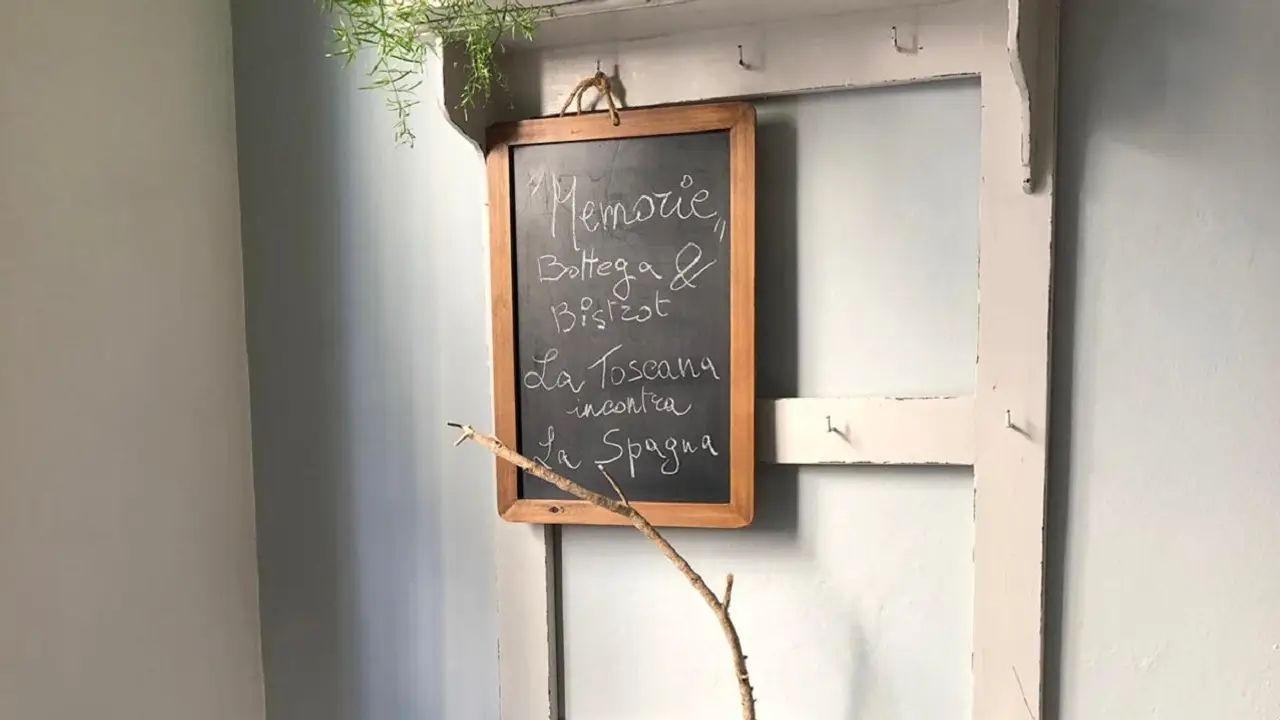 "Memorie"
Bottega &
Bistrot
La Toscana
incontra
La Spagna